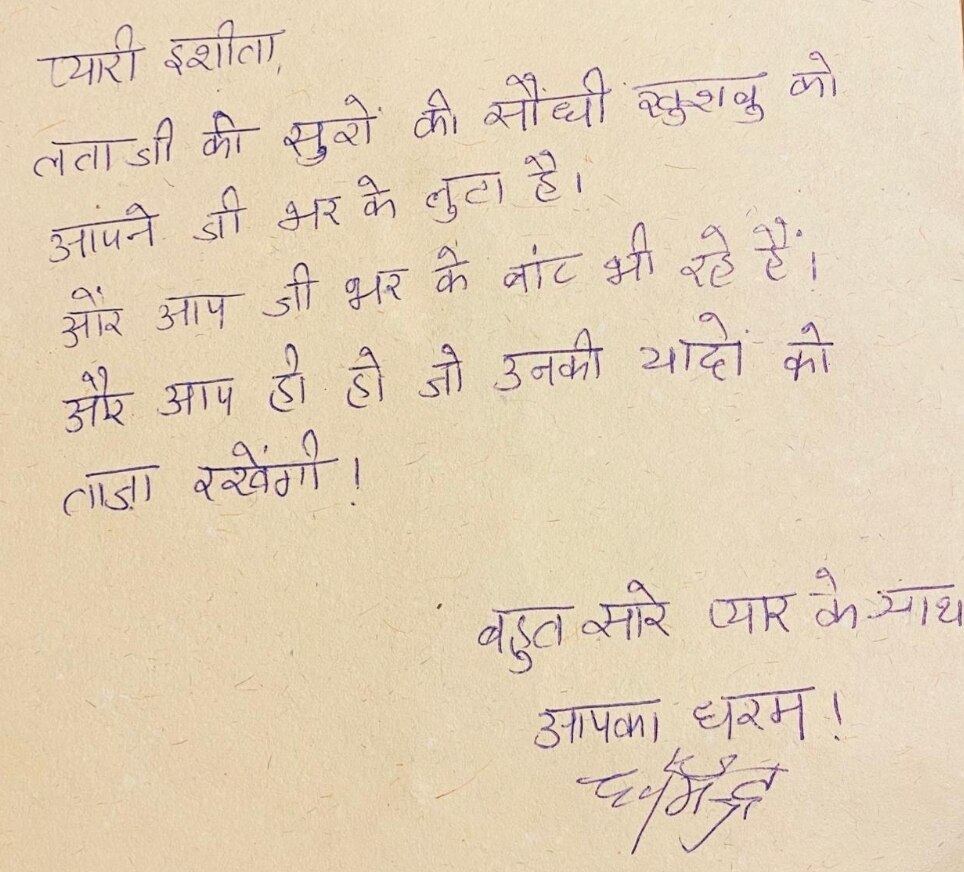 प्यारी इशीता,
लताजी की सुरों की सौंधी खुशबु को
आपने जी भर के लुटा है।
और आप जी भर के बांट भी रहे हैं।
और आप ही हो जो उनकी यादों को
ताज़ा रखेंगी!
बहुत सारे प्यार के साथ
आपका धरम!
धर्मेन्द्र